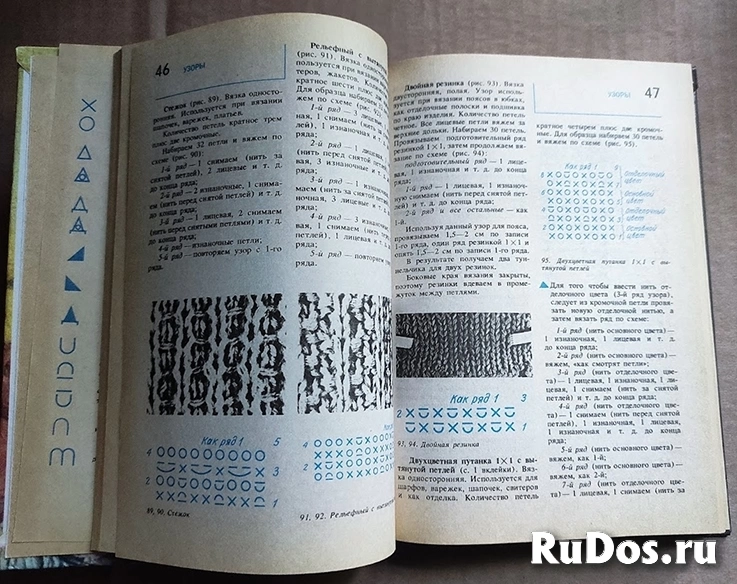 46 УЗОРЫ
Стежок (рис. 89). Вязка односто-
ронняя. Используется при вязании
шапочек, варежек, платьев.
Количество петель кратное трем
плюс две кромочные.
Набираем 32 петли и вяжем по
схеме (рис. 90):
1-й ряд — 1 снимаем (нить за
снятой петлей), 2 лицевые и т. д.
до конца ряда;
2-й ряд — 2 изнаночные, 1 снима-
ем (нить перед снятой петлей) и т. д.
до конца ряда;
3-й ряд — 1 лицевая, 2 снимаем
(нить перед снятыми петлями) и т. д.
до конца ряда;
4-й ряд — изнаночные петли;
5-й ряд — повторяем узор с 1-го
ряда.
Как ряд 1 5
4
3
2
1
89, 90. Стежок
Рельефный с вытяну
(рис. 91). Вязка односторон
пользуется при вязании
теров, жакетов. Колич
кратное шести плюс две
Для образца набираем
по схеме (рис. 92):
1-й ряд — 1
1 изнаночная
ряда;
2-й ряд
(нить перед снятой
3 изнаночные
3-й ряд
маем (нить за снятой
лицевая и т. д. до конца
4-й ряд — 3 изна
маем (нить перед
петлей), 1 лицевая и т. д.
ряда;
5-й ряд — повторяем
ряда.
Как ряд 1
4
2
91, 92. Рельефный с вытян
УЗОРЫ 47
Двойная резинка (рис. 93). Вязка
двусторонняя, полая. Узор исполь-
зуется при вязании поясов в юбках,
как отделочные полоски и подшивка
по краю изделия. Количество петель
четное. Все лицевые петли вяжем за
верхние дольки. Набираем 30 петель.
Провязываем подготовительный ряд
резинкой 1×1, затем продолжаем вя-
зание по схеме (рис. 94):
подготовительный ряд — 1 лице-
вая, 1 изнаночная и т. д. до конца
ряда;
1-й ряд — 1 лицевая, 1 изнаноч-
ную снимаем (нить перед снятой
петлей) и т. д. до конца ряда;
2-й ряд и все остальные — как
1-й.
Используя данный узор для пояса,
провязываем 1,5—2 см по записи
1-го ряда, один ряд резинкой 1×1 и
опять 1,5—2 см по записи 1-го ряда.
В результате получаем два тун-
нельчика для двух резинок.
Боковые края вязания закрыты,
поэтому резинки вдеваем в проме-
жуток между петлями.
Как ряд 1 3
2
1
93, 94. Двойная резинка
Двухцветная путанка 1×1 с вы-
тянутой петлей (с. 1 вклейки). Вяз-
ка односторонняя. Используется для
шарфов, варежек, шапочек, свитеров
и как отделка. Количество петель
кратное четырем плюс две кромочные.
Для образца набираем 30 петель и
вяжем по схеме (рис. 95).
Как ряд 1 9
8
Отделочный
цвет
6
Основной
цвет
4
Отделочный
цвет
2
Основной
цвет
95. Двухцветная путанка 1×1 с вы-
тянутой петлей
Для того чтобы ввести нить от-
делочного цвета (3-й ряд узора),
следует из кромочной петли провя-
зать новую отделочной нитью, а
затем вязать ряд по схеме:
1-й ряд (нить основного цвета) —
1 изнаночная, 1 лицевая и т. д.
до конца ряда;
2-й ряд (нить основного цвета) —
вяжем, «как смотрят петли»;
3-й ряд (нить отделочного цве-
та) — 1 лицевая, 1 изнаночная, 1 ли-
цевая, 1 снимаем (нить за снятой
петлей) и т. д. до конца ряда;
4-й ряд (нить отделочного цвета) —
1 снимаем (нить перед снятой петлей),
1 изнаночная, 1 лицевая,
1 изнаночная и т. д. до конца
ряда;
5-й ряд (нить основного цвета) —
вяжем, как 1-й;
6-й ряд (нить основного цвета) —
вяжем, как 2-й;
7-й ряд (нить отделочного цве-
та) — 1 лицевая, 1 снимаем (нить за
RuDos.ru